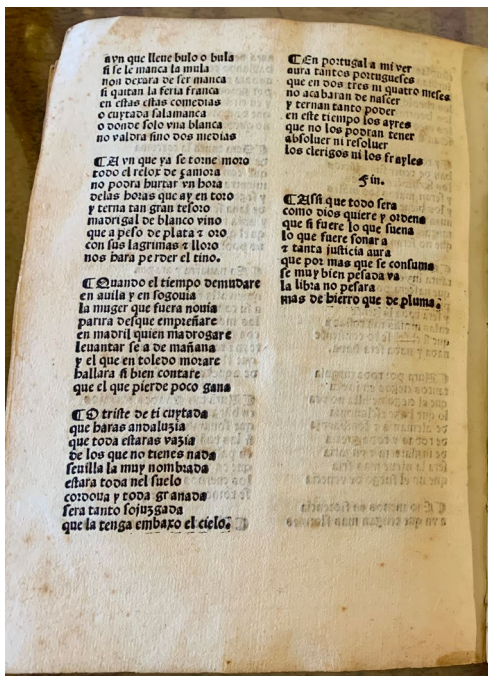 ayn que lleue bulo o bula
si se le manca la mula
non dexara de ser manca
si quitan la feria franca
en estas estas comedias
o cuytada salamanca
o donde solo vna blanca
no valdra sino dos medias
¶ A vn que ya se torne moro
todo el relox de çamora
no podra hurtar vn hora
delas horas que ay en toro
y terna tan gran tesoro
madrigal de blanco vino
que a peso de plata ⁊ oro
con sus lagrimas ⁊ lloro
nos hara perder el tino.
¶ Quando el tiempo demudare
en auila y en segouia
la muger que fuera nouia
parira desque empreñare
en madrid quien madrogare
leuantar se a de mañana
y el que en toledo morare
hallara si bien contare
que el que pierde poco gana
¶ O triste de ti cuytada
que haras andaluzia
que toda estaras vazia
de los que no tienes nada
seuilla la muy nombrada
estara toda nel suelo
cordoua y toda granada
sera tanto sojuzgada
que la tenga embaxo el cielo.
¶ En portugal a mi ver
aura tantos portugueses
que en dos tres ni quatro meses
no acabaran de nascer
y ternan tanto poder
en este tiempo los ayres
que no los podran tener
absoluer ni resoluer
los clerigos ni los frayles
Fin.
¶ Assi que todo sera
como dios quiere y ordena
que si fuere lo que suena
lo que fuere sonara
⁊ tanta justicia aura
que por mas que se consuma
se muy bien pesada va
la libra no pesara
mas de hierro que de pluma.